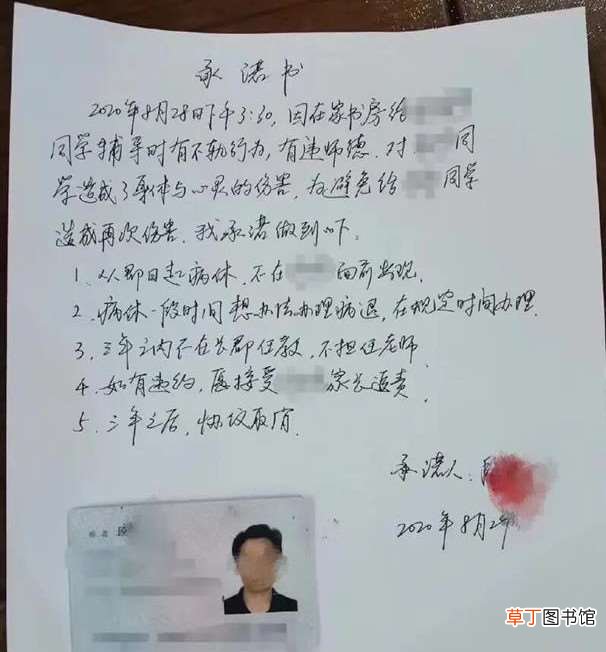 承诺书
2020年8月28日下午3:30,因在家书房给
同学辅导时有不轨行为,有违师德.对 同
学造成了身体与心灵的伤害,为避免给 同学
造成再次伤害.我承诺做到以下.
1、从即日起病休.不在 面前出现.
2、病休一段时间想办法办理病退,在规定时间办理.
3、三年之内不在长郡任教,不担任老师.
4、如有违约,愿接受 家长追责.
5、三年之后,协议取消.
承诺人:段
2020年8月
姓名 段
草丁图书馆